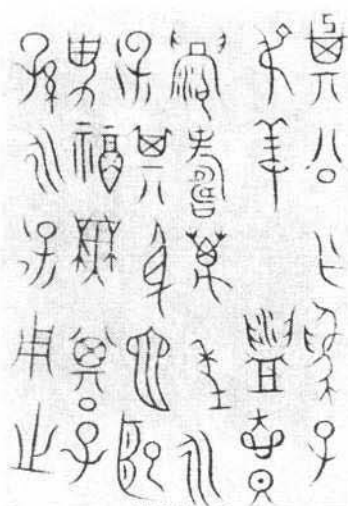 㠱公乍爲子
叔姜盥壺
眉壽萬年永
保其身它巸
受福無期子
孫永保用之